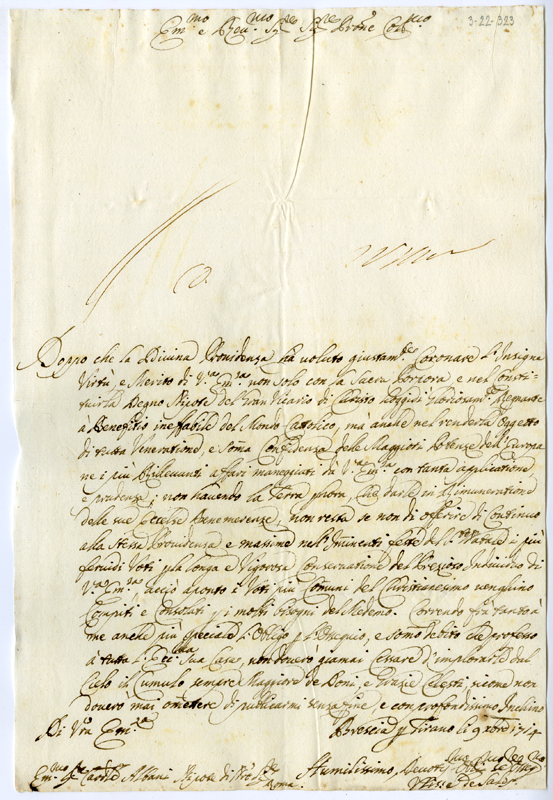 3-22-323
Em.mo e Rev.mo Sig.re Sig.re Prone Col.mo
Doppo che la Divina Providenza hà voluto giustam.te Coronare l'Insigne
Virtù, e Merito di V.a Em.za non solo con la Sacra Porpora, e nel Consti-
tuirla Degno Nipote del gran Vicario di Christo hoggidi Regnante
à Beneficio ineffabile del Mondo Cattolico, mà anche nel renderla Oggetto
di Venerazione, e Somma Confidenza delle Maggiori Potenze dell'Europa
ne i più Rillevanti affari maneggiati dà V.a Em.za con tanta applicatione
e prudenza; non havendo la Terra che darle in Rimuneratione
delle sue Eccelse Benemerenze, non resta se non di offerire di Continuo
alla Stessa Providenza e massime nell'Iminenti feste del S. Natale i più
feruidi Voti p. la longa e Vigorosa Conservatione del Prezioso Individuo di
V.a Em.za acciò i Voti più Comuni del Christianesimo venghino
Compiti e Consolati p. i molti bisogni del Medemo. Correndo frà tanto à
me anche più speciale l'Obligo p. l'Ossequio, e sommo debito che professo
à tutta l'Ecc.ma Sua Casa, non doverò giamai Cessare d'implorarle dal
Cielo il Cumulo sempre Maggiore de Beni, e Grazie Celesti; sicome non
doverò mai omettere di publicarmi senza fine, e con profondissimo Inchino
Di V.ra Em.za Brescia p. Tirano li 9 Xbre 1714
Em.mo Sig. Card.le Albani Nipote di N.ro Sig.re Humilissimo, Devotis.
Roma. Ulisse de Salis